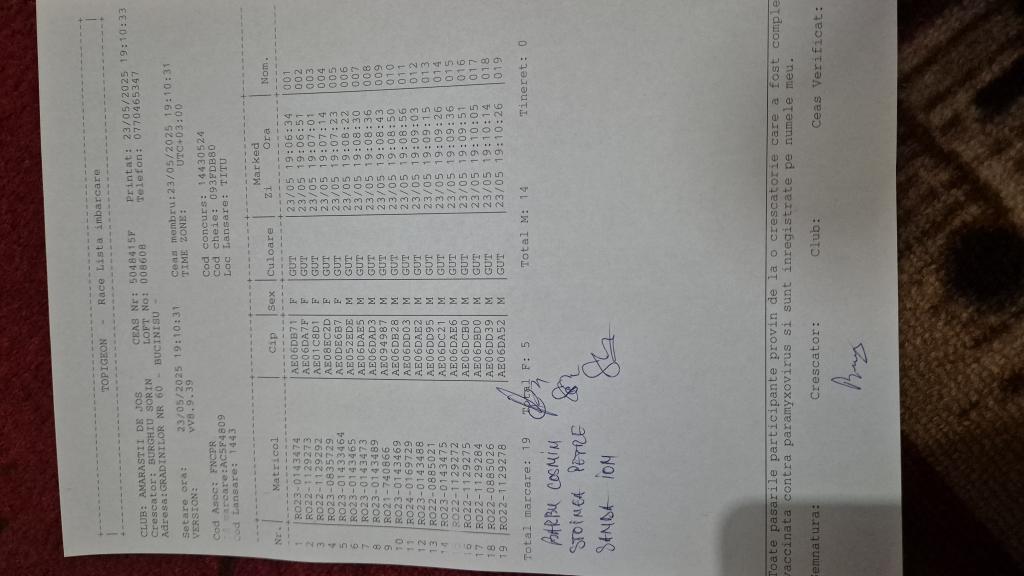 TOPIGEON - Race Lista imbarcare
CLUB: AMARASTII DE JOS CEAS Nr: 5048415F Printat: 23/05/2025 19:10:33
Crescator: BURGHIU SORIN LOFT No: 008608 Telefon: 0770465347
Adresa:GRADINILOR NR 60 - BUCINISU -
Setare ora: 23/05/2025 19:10:31 Ceas membru:23/05/2025 19:10:31
VERSION: vv8.9.39 TIME ZONE: UTC+03:00
Cod Asoc: FNCPR Cod concurs: 14430524
marcare:AC5F4809 Cod cheie: 093FDB80
Cod Lansare: 1443 Loc Lansare: TITU
Marked
Nr. Matricol Cip Sex Culoare Zi Ora Nom.
1 RO23-0143474 AE06DB71 F GUT 23/05 19:06:34 001
2 RO22-1129273 AE06DA7F F GUT 23/05 19:06:51 002
3 RO22-1129292 AE01C8D1 F GUT 23/05 19:07:01 003
4 RO23-0835729 AE08EC2D F GUT 23/05 19:07:14 004
5 RO23-01433464 AEDDE6B7 F GUT 23/05 19:07:23 005
6 RO23-0143465 AE052EDE M GUT 23/05 19:08:22 006
7 RO23-0143473 AE06DAE5 M GUT 23/05 19:08:30 007
8 RO23-0143489 AE06DAD3 M GUT 23/05 19:08:36 008
9 RO21-740866 AE094987 M GUT 23/05 19:08:43 009
10 RO23-0143469 AE06DB28 M GUT 23/05 19:08:50 010
11 RO24-0169729 AE06DD03 M GUT 23/05 19:08:56 011
12 RO23-0143488 AE06DAE2 M GUT 23/05 19:09:03 012
13 RO22-0885021 AE06DD95 M GUT 23/05 19:09:15 013
14 RO23-0143475 AE06DC21 M GUT 23/05 19:09:26 014
RO22-1129272 AE06DAE6 M GUT 23/05 19:09:36 015
16 RO22-1129275 AE06DCB0 M GUT 23/05 19:09:51 016
17 RO22-1129284 AE06DBD0 M GUT 23/05 19:10:05 017
18 RO22-0885026 AE06DD39 M GUT 23/05 19:10:14 018
19 RO22-1129278 AE06DA52 M GUT 23/05 19:10:26 019
Total marcare: 19 Total F: 5 Total M: 14 Tineret: 0
BARBU COSMIN
STOINEA PETRE
SANDA ION
Toate pasarile participante provin de la o crescatorie care a fost comple
vaccinata contra paramyxovirus si sunt inregistrate pe numele meu.
Semnatura: Crescator: Club: Ceas Verificat: